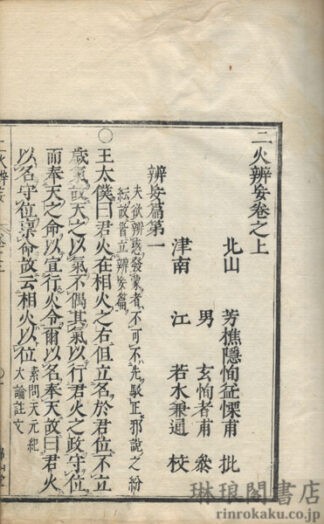 二火辨妄卷之上
北山 芳樵隱恂益慄甫 批
男 玄恂者甫 參
津南 江 若水兼通 校
辨妄篇第一
夫欲辨惑發蒙者不可不先駁正邪說之紛
紜故首立辨妄篇
○王太僕曰君火在相火之右但立名於君位不立
歲氣故天之以氣不偶其氣以行君火之政守位
而奉天之命以宣行火令爾以名奉天故曰君火
以名守位稟命故云相火以位 素問天元紀
大論註文
二火辨妄
琳琅閣書店
rinrokaku.co.jp